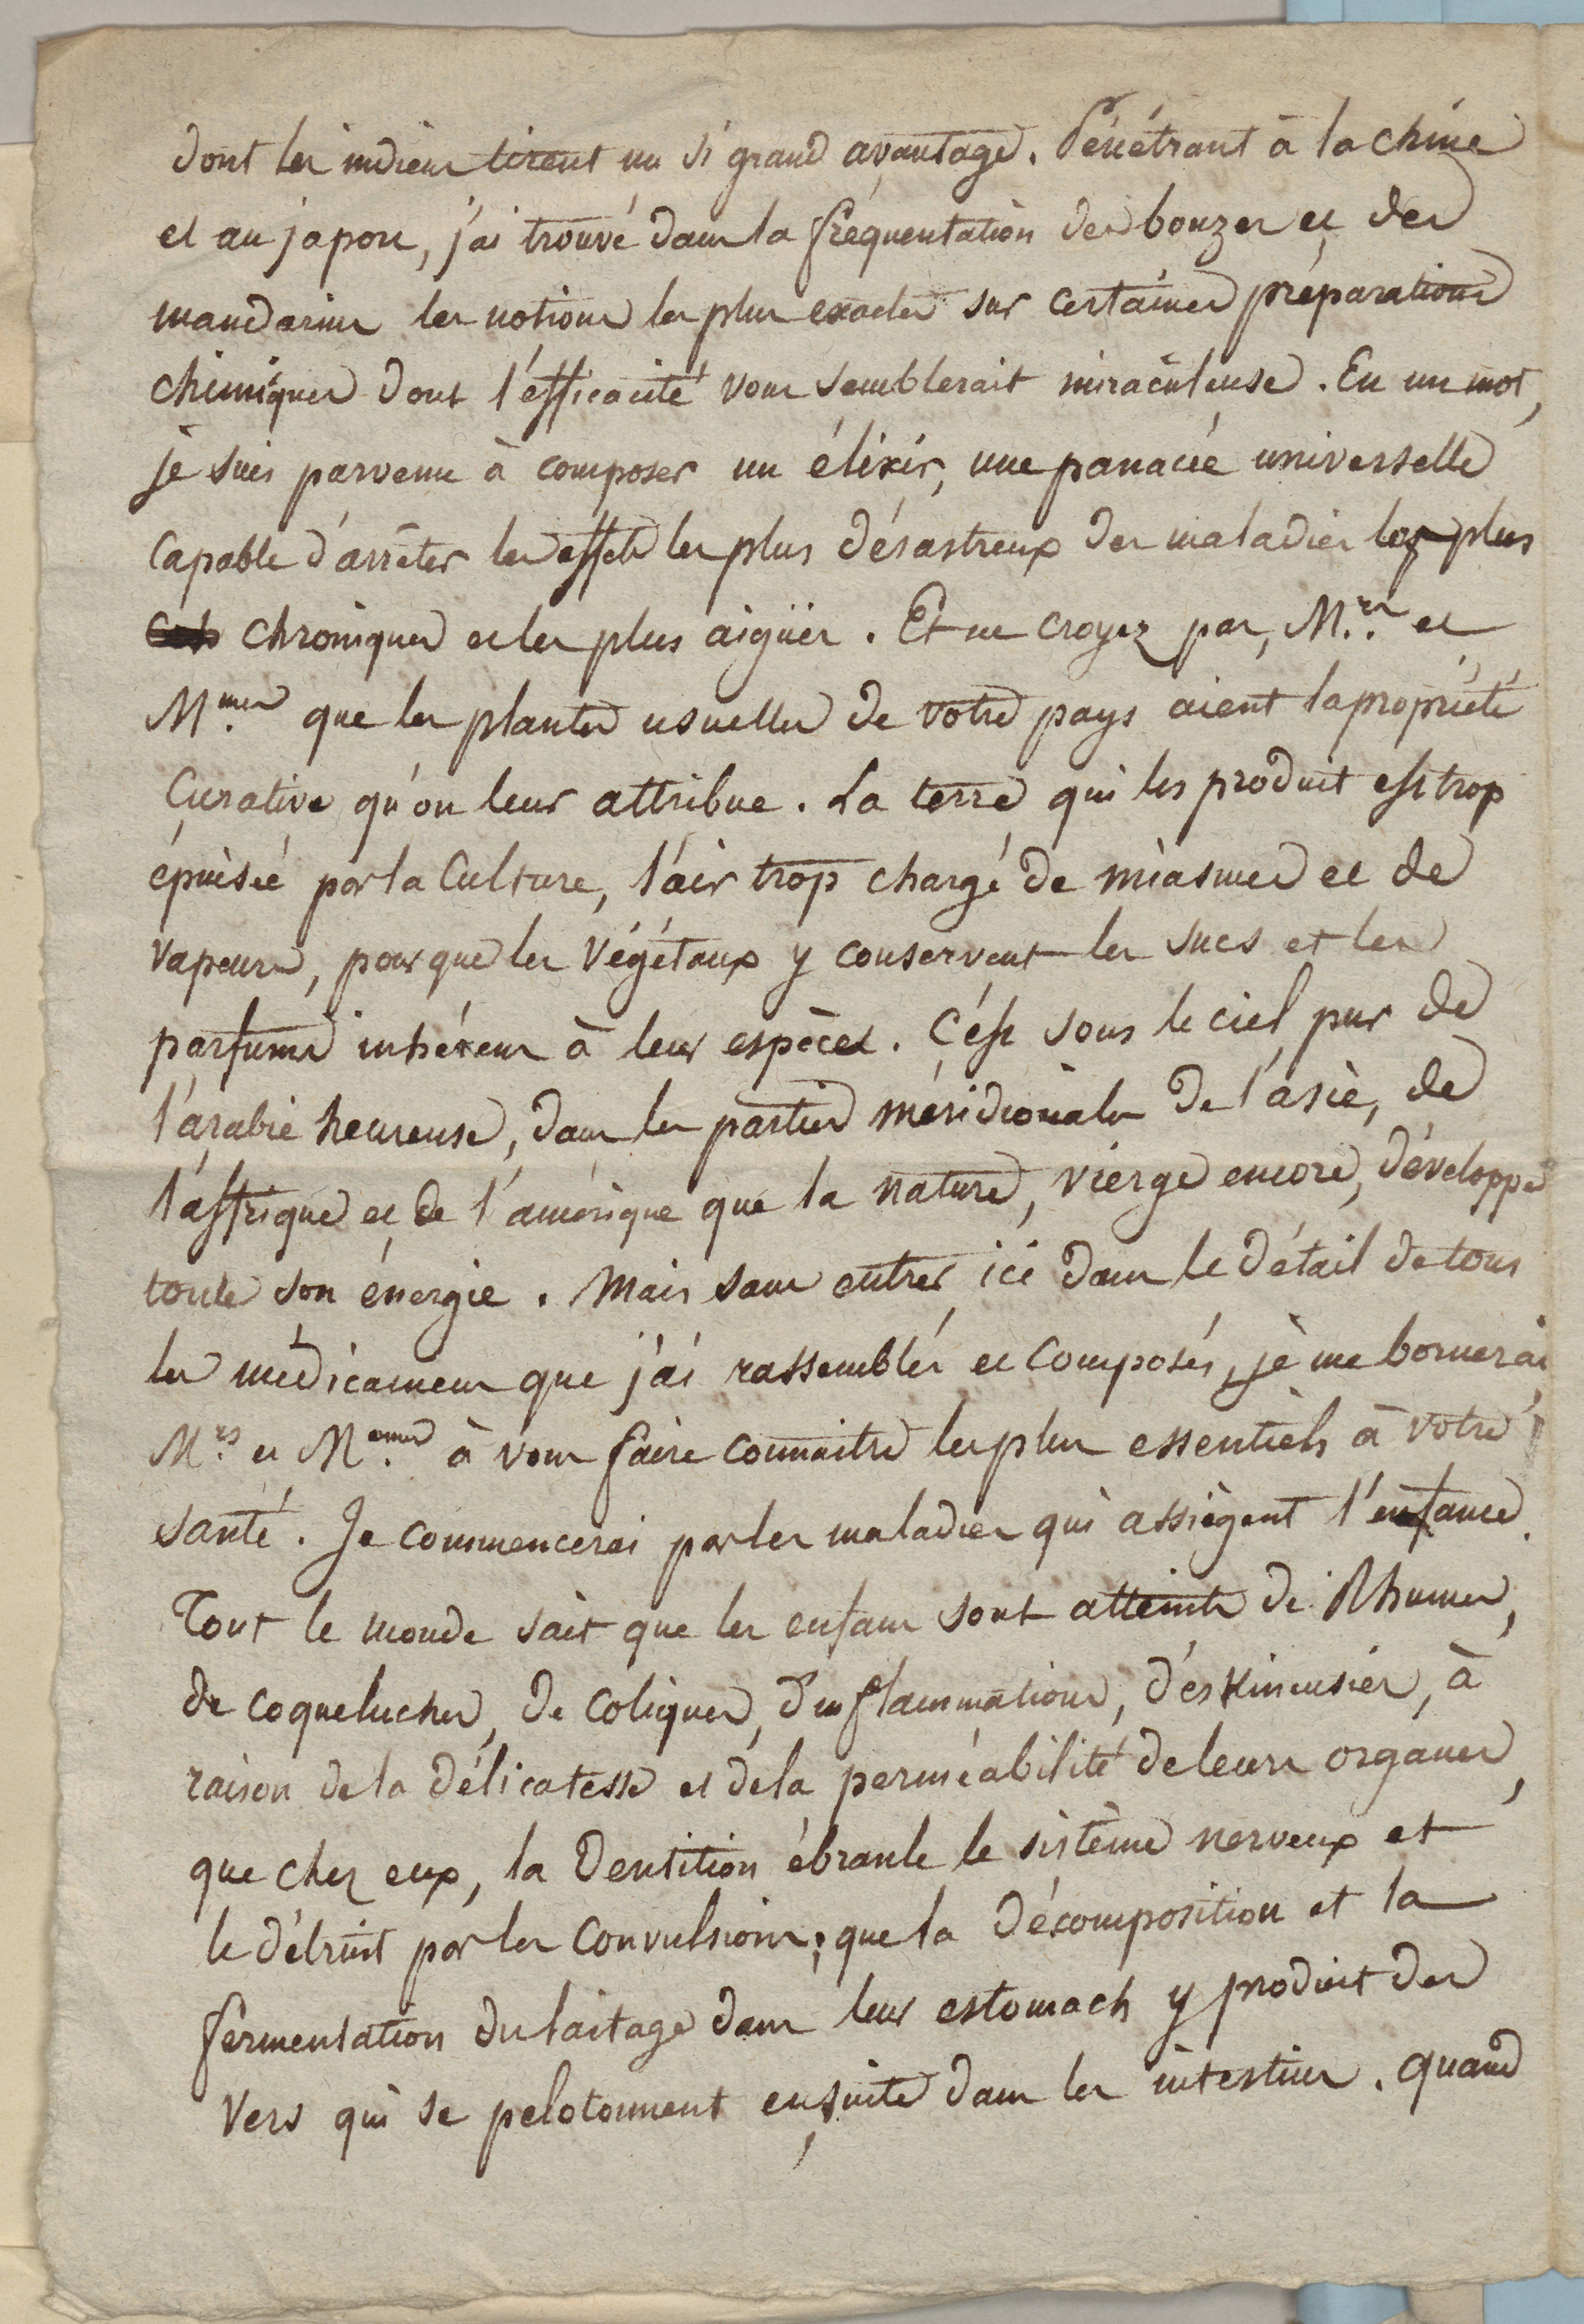 dont les indiens tirent un si grand avantage. Pénétrant à la chine
et au japon, j'ai trouvé dans la fréquentation des bonzes et des
mandarins les notions les plus exactes sur certaines préparations
chimiques dont l'efficacité vous semblerait miraculeuse. En un mot,
je suis parvenu à composer un élixir, une panacée universelle
capable d'arrêter les effets les plus désastreux des maladies les plus
chroniques et les plus aigües. Et ne croyez pas, M.rs et
M.mes que les plantes usuelles de votre pays aient la propriété
curative qu'on leur attribue. La terre qui les produit est trop
épuisée par la Culture, l'air trop chargé de miasmes et de
vapeurs, pour que les végétaux y conservent les sucs et les
parfums inhérens à leur espèce. C'est sous le ciel pur de
l'arabie heureuse, dans les parties méridionales de l'asie, de
l'affrique et de l'amérique que la nature, vierge encore, développe
toute son énergie. Mais sans entrer ici dans le détail de tous
les médicamens que j'ai rassemblés et composés, je me bornerai
M.rs et M.ames à vous faire connaitre les plus essentiels à votre
santé. Je commencerai par les maladies qui assiègent l'enfance.
Tout le monde sait que les enfans sont atteints de Rhumes,
de coqueluches, de coliques, d'inflammations, d'eskinensies, à
raison de la délicatesse et de la perméabilité de leurs organes,
que chez eux, la Dentition ébranle le sistème nerveux et
le détruit par les convulsions; que la décomposition et la
fermentation du laitage dans leur estomach y produit des
vers qui se pelotonnent ensuite dans les intestins. quand